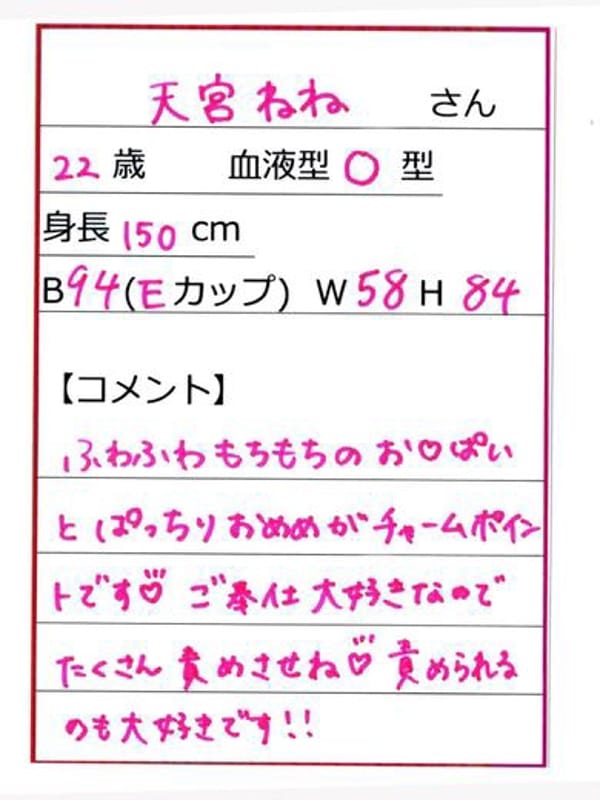 天宮ねね さん
22歳 血液型 O 型
身長 150 cm
B94(Eカップ) W58 H 84
【コメント】
ふわふわもちもちのお♡ぱい
とぱっちりおめめがチャームポイン
トです♡ ご奉仕大好きなので
たくさん責めさせね♡責められる
のも大好きです!!